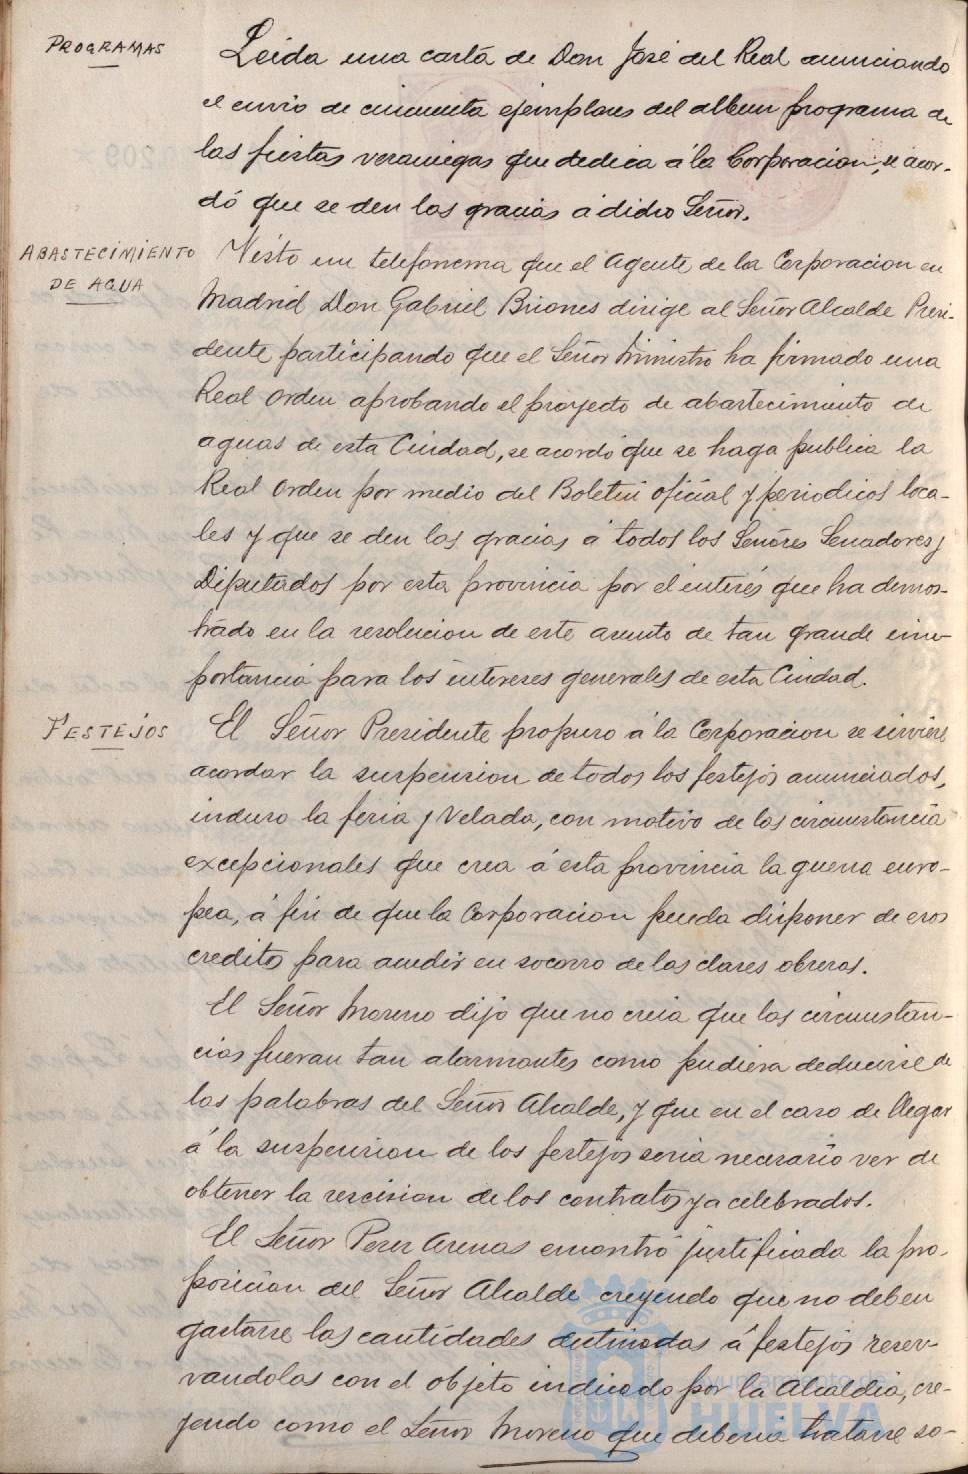 PROGRAMAS
Leida una carta de Don José del Real anunciando
el envio de cincuenta ejemplares del album programa de
las fiestas veraniegas que dedica á la Corporacion, se acor-
dó que se den las gracias á dicho Señor.
ABASTECIMIENTO
DE AGUA
Visto un telefonema que el Agente de la Corporacion en
Madrid Don Gabriel Briones dirige al Señor Alcalde Presi-
dente participando que el Señor Ministro ha firmado una
Real Orden aprobando el proyecto de abastecimiento de
aguas de esta Ciudad, se acordó que se haga publica la
Real Orden por medio del Boletin oficial y periodicos loca-
les y que se den las gracias á todos los Señores Senadores y
Diputados por esta provincia por el interés que ha demos-
trado en la resolucion de este asunto de tan grande im-
portancia para los intereses generales de esta Ciudad.
FESTEJOS
El Señor Presidente propuso á la Corporacion se sirviese
acordar la suspension de todos los festejos anunciados,
incluso la feria y Velada, con motivo de las circunstancia
excepcionales que crea á esta provincia la guerra euro-
pea, á fin de que la Corporacion pueda disponer de esos
creditos para acudir en socorro de las clases obreras.
El Señor Moreno dijo que no creia que las circunstan-
cias fueran tan alarmantes como pudiera deducirse de
las palabras del Señor Alcalde, y que en el caso de llegar
á la suspension de los festejos seria necesario ver de
obtener la rescision de los contratos ya celebrados.
El Señor Perez Arenas encontró justificada la pro-
posicion del Señor Alcalde creyendo que no deben
gastarse las cantidades destinadas á festejos reser-
vandolas con el objeto indicado por la Alcaldia, cre-
yendo como el Señor Moreno que deberia tratarse so-
Ayuntamiento de
HUELVA